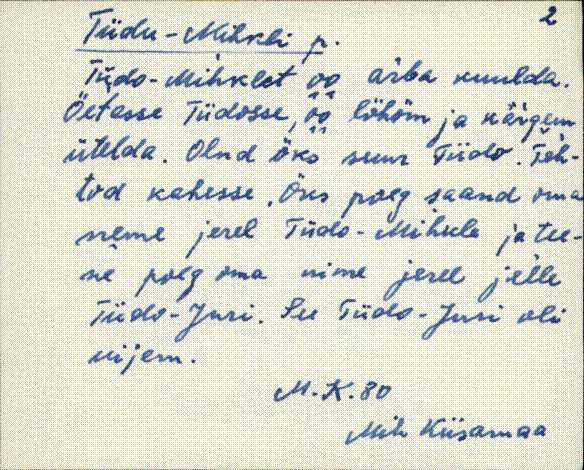 2
Tiidu-Mihkli p.
Tiido-Mihklet oo ärba kuulda.
Öetasse Tiidosse, oo löhöm ja kärgem
ütelda. Olnd öks suur Tiido. Teh-
tod kahesse. Öks poeg saand oma
neme jerel Tiido-Mihkle ja tee-
ne poeg oma nime jerel jelle
Tiido-Juri. See Tiido-Juri oli
nijem.
M.K.80
Mih Kiisamaa